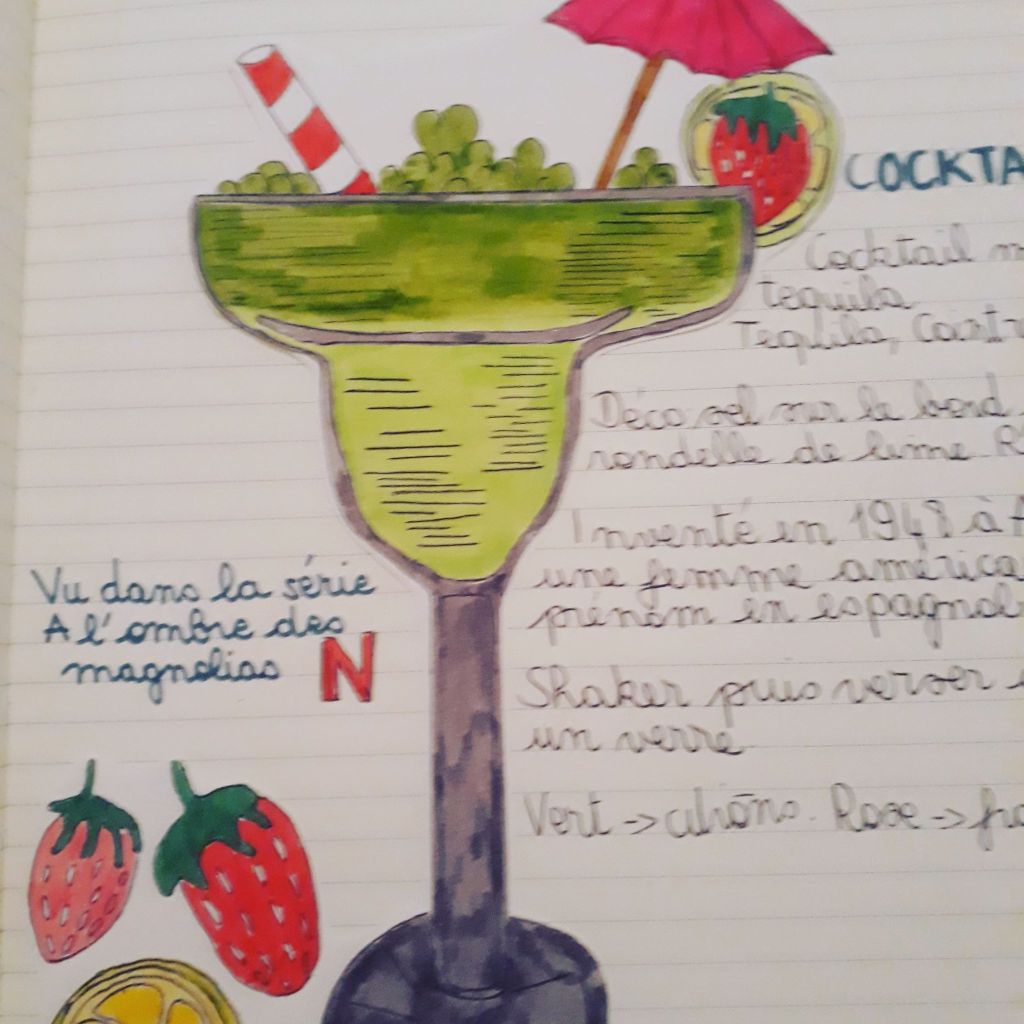 COCKTA
Cocktail m
tequila
Tequila, Coint
Déco sel sur le bord
rondelle de lime R
Inventé en 1948 à A
une femme américa
prénom en espagnol
Shaker puis verser
un verre
Vert -> citrons. Rose -> fra
Vu dans la série
A l'ombre des
magnolias N